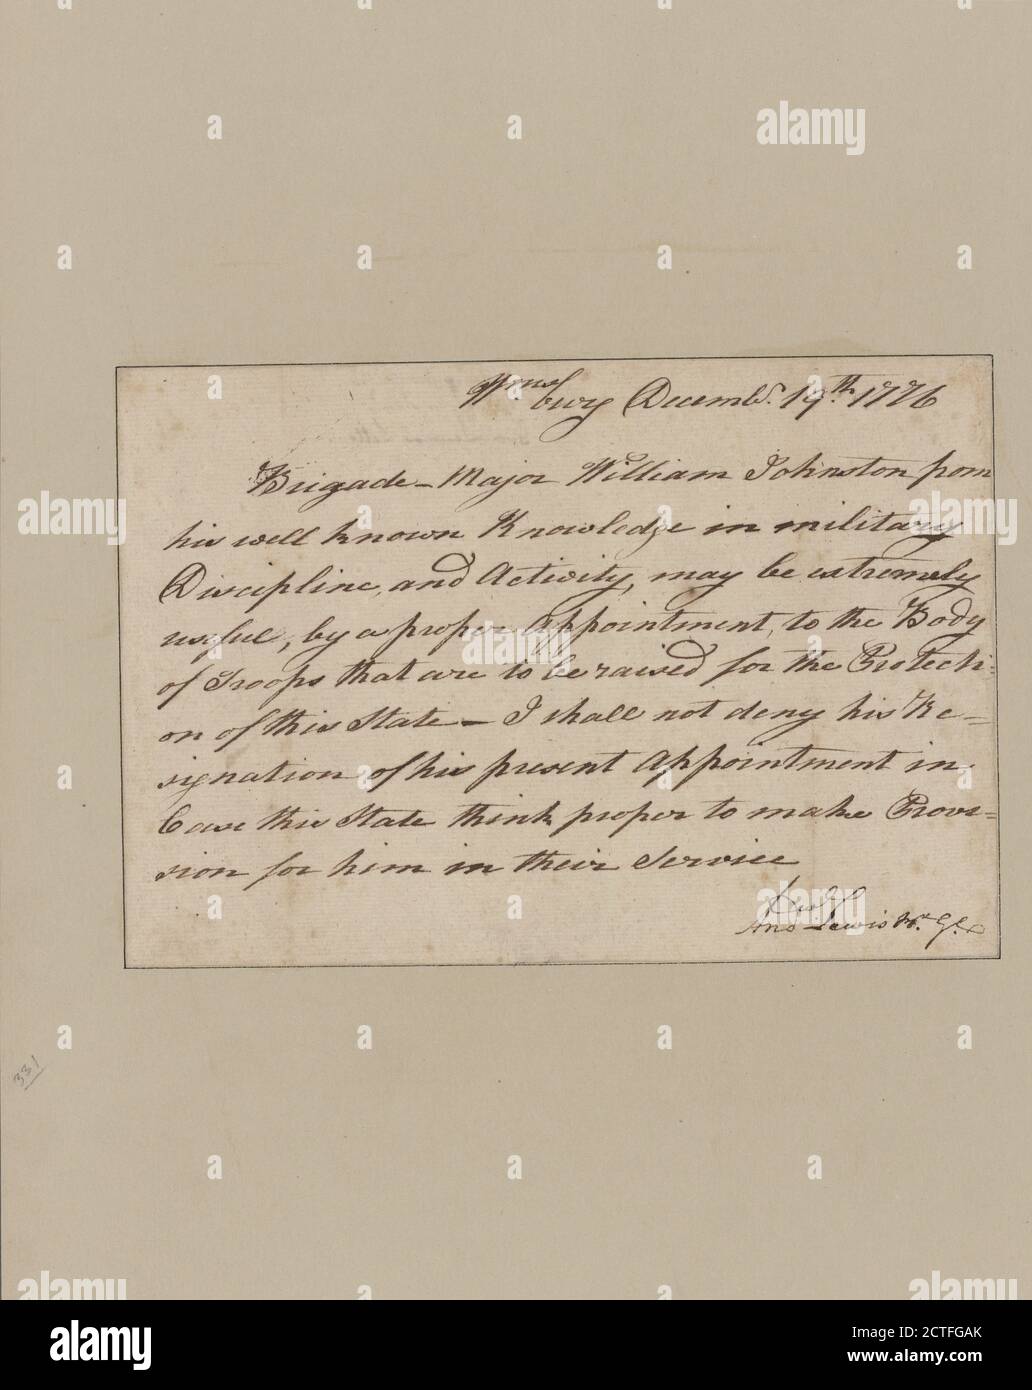 Wmsburg Decemb.r 19.th 1776
Brigade-Major William Johnston from
his well known Knowledge in military
Discipline, and Activity, may be extremely
useful, by a proper Appointment, to the Body
of Troops that are to be raised for the Protecti-
on of this State - I shall not deny his Re=
signation of his present Appointment in
Case this State think proper to make Provi=
sion for him in their Service
And.w Lewis
331
alamy
a
alamy
Image ID: 2CTFGAK
www.alamy.com